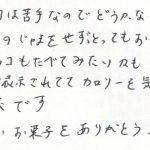 は苦手なのでどうかな
のじゃまをせずとってもお
コもたべてみたい力も
表示されててカロリーを気
です
お菓子をありがとう